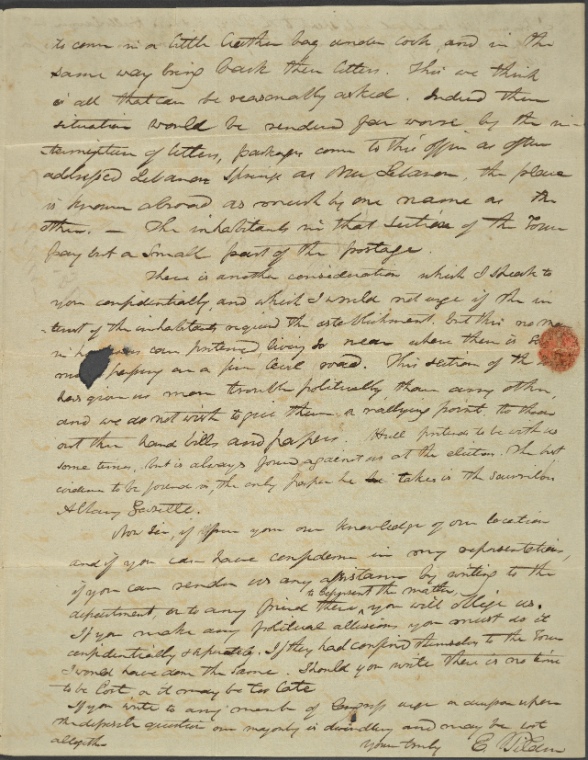 its come in a little leather bag under lock, and in the
same way bring back their letters. This we think
is all that can be reasonally asked. Indeed their
situation would be rendered far worse by the in-
terruption of letters, packages come to this office as often
addressed Lebanon Springs as New Lebanon, the place
is known abroad as much by one name as the
other. — The inhabitants in that section of the Town
pay but a small part of the postage.
There is another consideration which I speak to
you confidentially, and which I would not urge if the in-
terest of the inhabitants required the establishment, but this no
in can pretend, living so near where there is
on a fine level road. This section of the
has given us more trouble politically, than any other,
and we do not wish to give them a rallying point to throw
out their hand bills and papers. Hull pretends to be with us
some times, but is always found against us at the election. The best
evidence to be found is, the only paper he takes is the scurrilous
Albany Gazette.
Now Sir, if from your own knowledge of our location
and if you can have confidence in my representation,
if you can render us any assistance by writing to the
department, or to any friend there, to represent the matter, you will oblige us.
If you make any political allusions you must do it
confidentially & private. If they had confined themselves to the Town
I would have done the same. Should you write there is no time
to be lost or it may be too late
If you write to any member of Congress urge
the question our majority is dwindling and may be lost
altogether
Yours truly E. Tilden